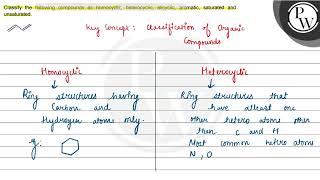 Classify the following compounds as homocyclic, heterocyclic, alicyclic, aromatic, saturated and unsaturated.
Key Concept: Classification of Organic
Compounds
Homocyclic
Ring structures having
Carbon and
Hydrogen atoms only.
eg:
Heterocyclic
Ring structures that
have atleast one
other hetero atoms other
than C and H
Most common hetero atoms
N, O
PW